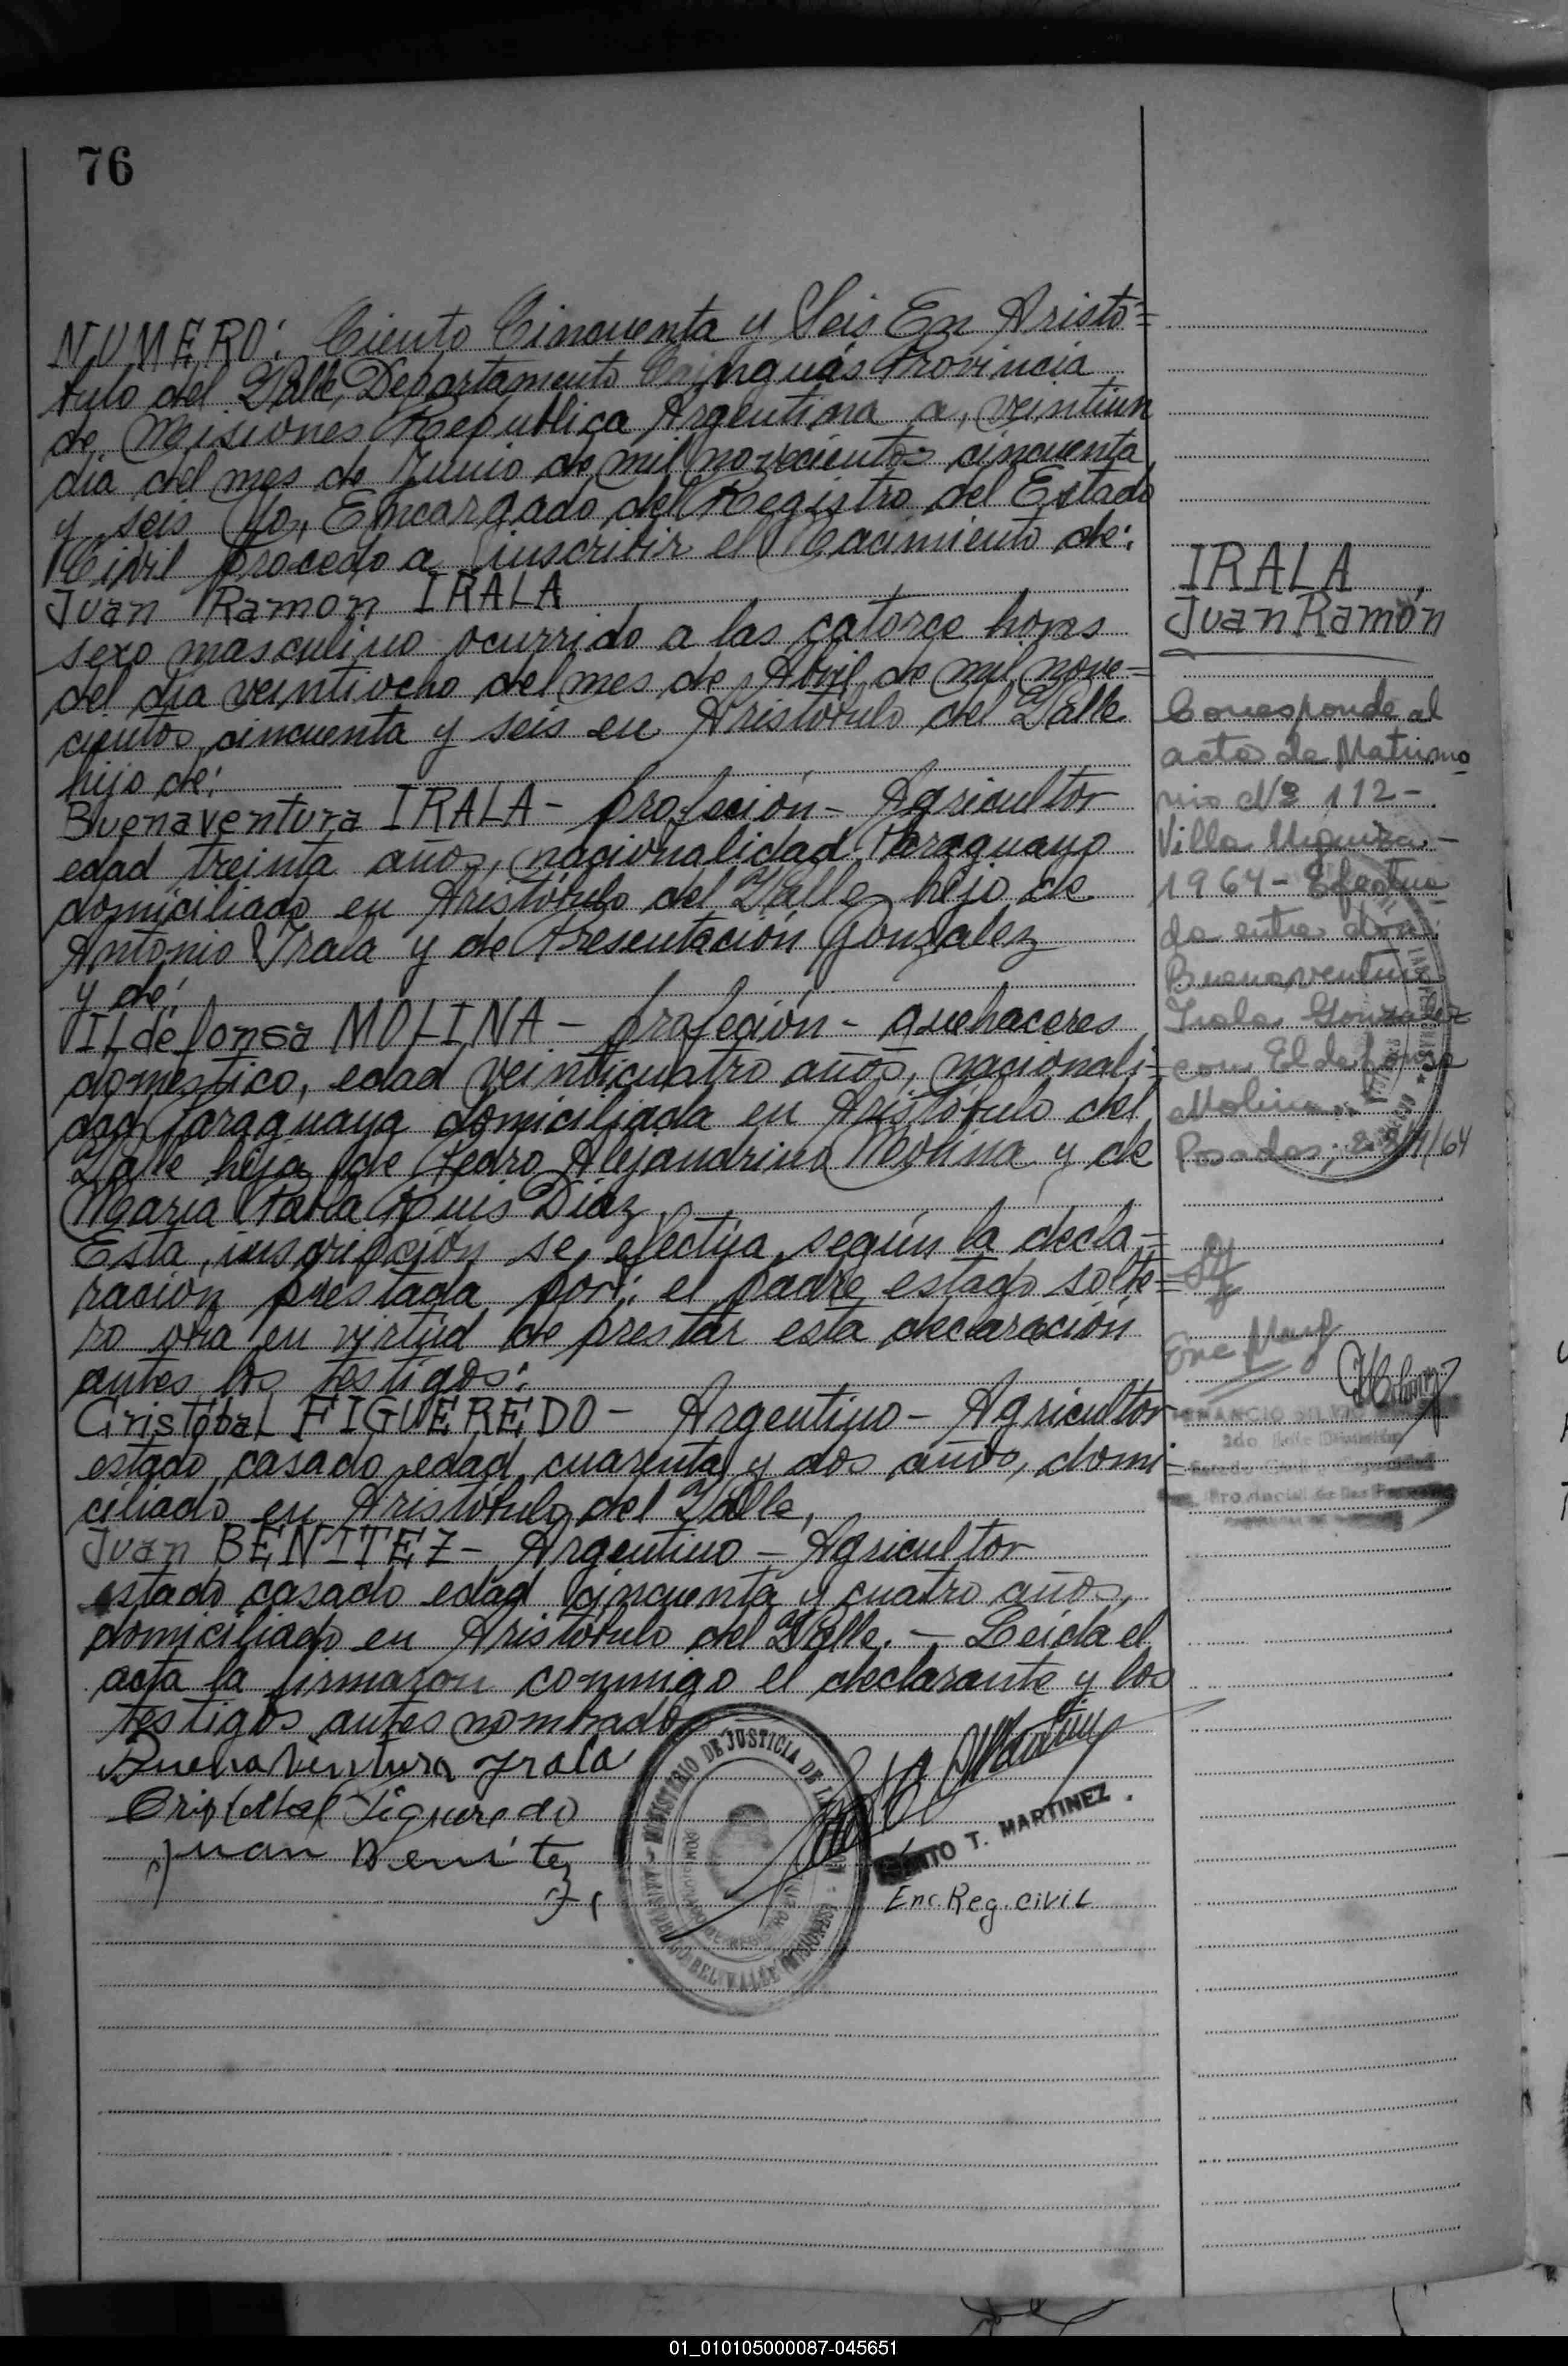 76
NUMERO: Ciento Cincuenta y Seis En Aristó=
bulo del Valle, Departamento Cainguás Provincia
de Misiones República Argentina a, veintiun
dia del mes de Junio de mil novecientos cincuenta
y seis Yo, Encargado del Registro del Estado
Civil procedo a inscribir el Nacimiento de:
Juan Ramon IRALA
sexo masculino ocurrido a las catorce horas
del día veintiocho del mes de Abril de mil nove=
cientos cincuenta y seis en Aristóbulo del Valle
hijo de:
Buenaventura IRALA - profeción - Agricultor
edad treinta años, nacionalidad Paraguayo
domiciliado en Aristóbulo del Valle hijo de
Antonio Irala y de Presentación Gonzalez
y de:
ILdefonsa MOLINA - profeción - quehaceres
doméstico, edad veinticuatro años, nacionali=
dad Paraguaya domiciliada en Aristóbulo del
Valle hija de Pedro Alejandrino Molina y de
Maria Pabla Ruis Diaz
Esta inscripción se efectúa según la decla=
ración prestada por: el padre estado solte=
ro obra en virtud de prestar esta declaración
antes los testigos:
Cristóbal FIGUEREDO - Argentino - Agricultor
estado casado edad cuarenta y dos años, domi=
ciliado en Aristóbulo del Valle,
Juan BENITEZ - Argentino - Agricultor
estado casado edad cincuenta y cuatro años,
domiciliado en Aristóbulo del Valle. - Leída el
acta la firmaron conmigo el declarante y los
testigos antes nombrado
Buenaventura Irala
Cristobal Figueredo
Juan Benitez
MINISTERIO DE JUSTICIA DE LA
T. MARTINEZ.
Enc. Reg. Civil
IRALA
Juan Ramón
Corresponde al
acta de Matrimo
nio Nº 112-
Villa Urquiza-
1964- Efectua
da entre don
Buenaventura
Irala Gonzalez
con Eldefonsa
Molina
Posadas,
Enc Marg
2do Jefe División
01_010105000087-045651